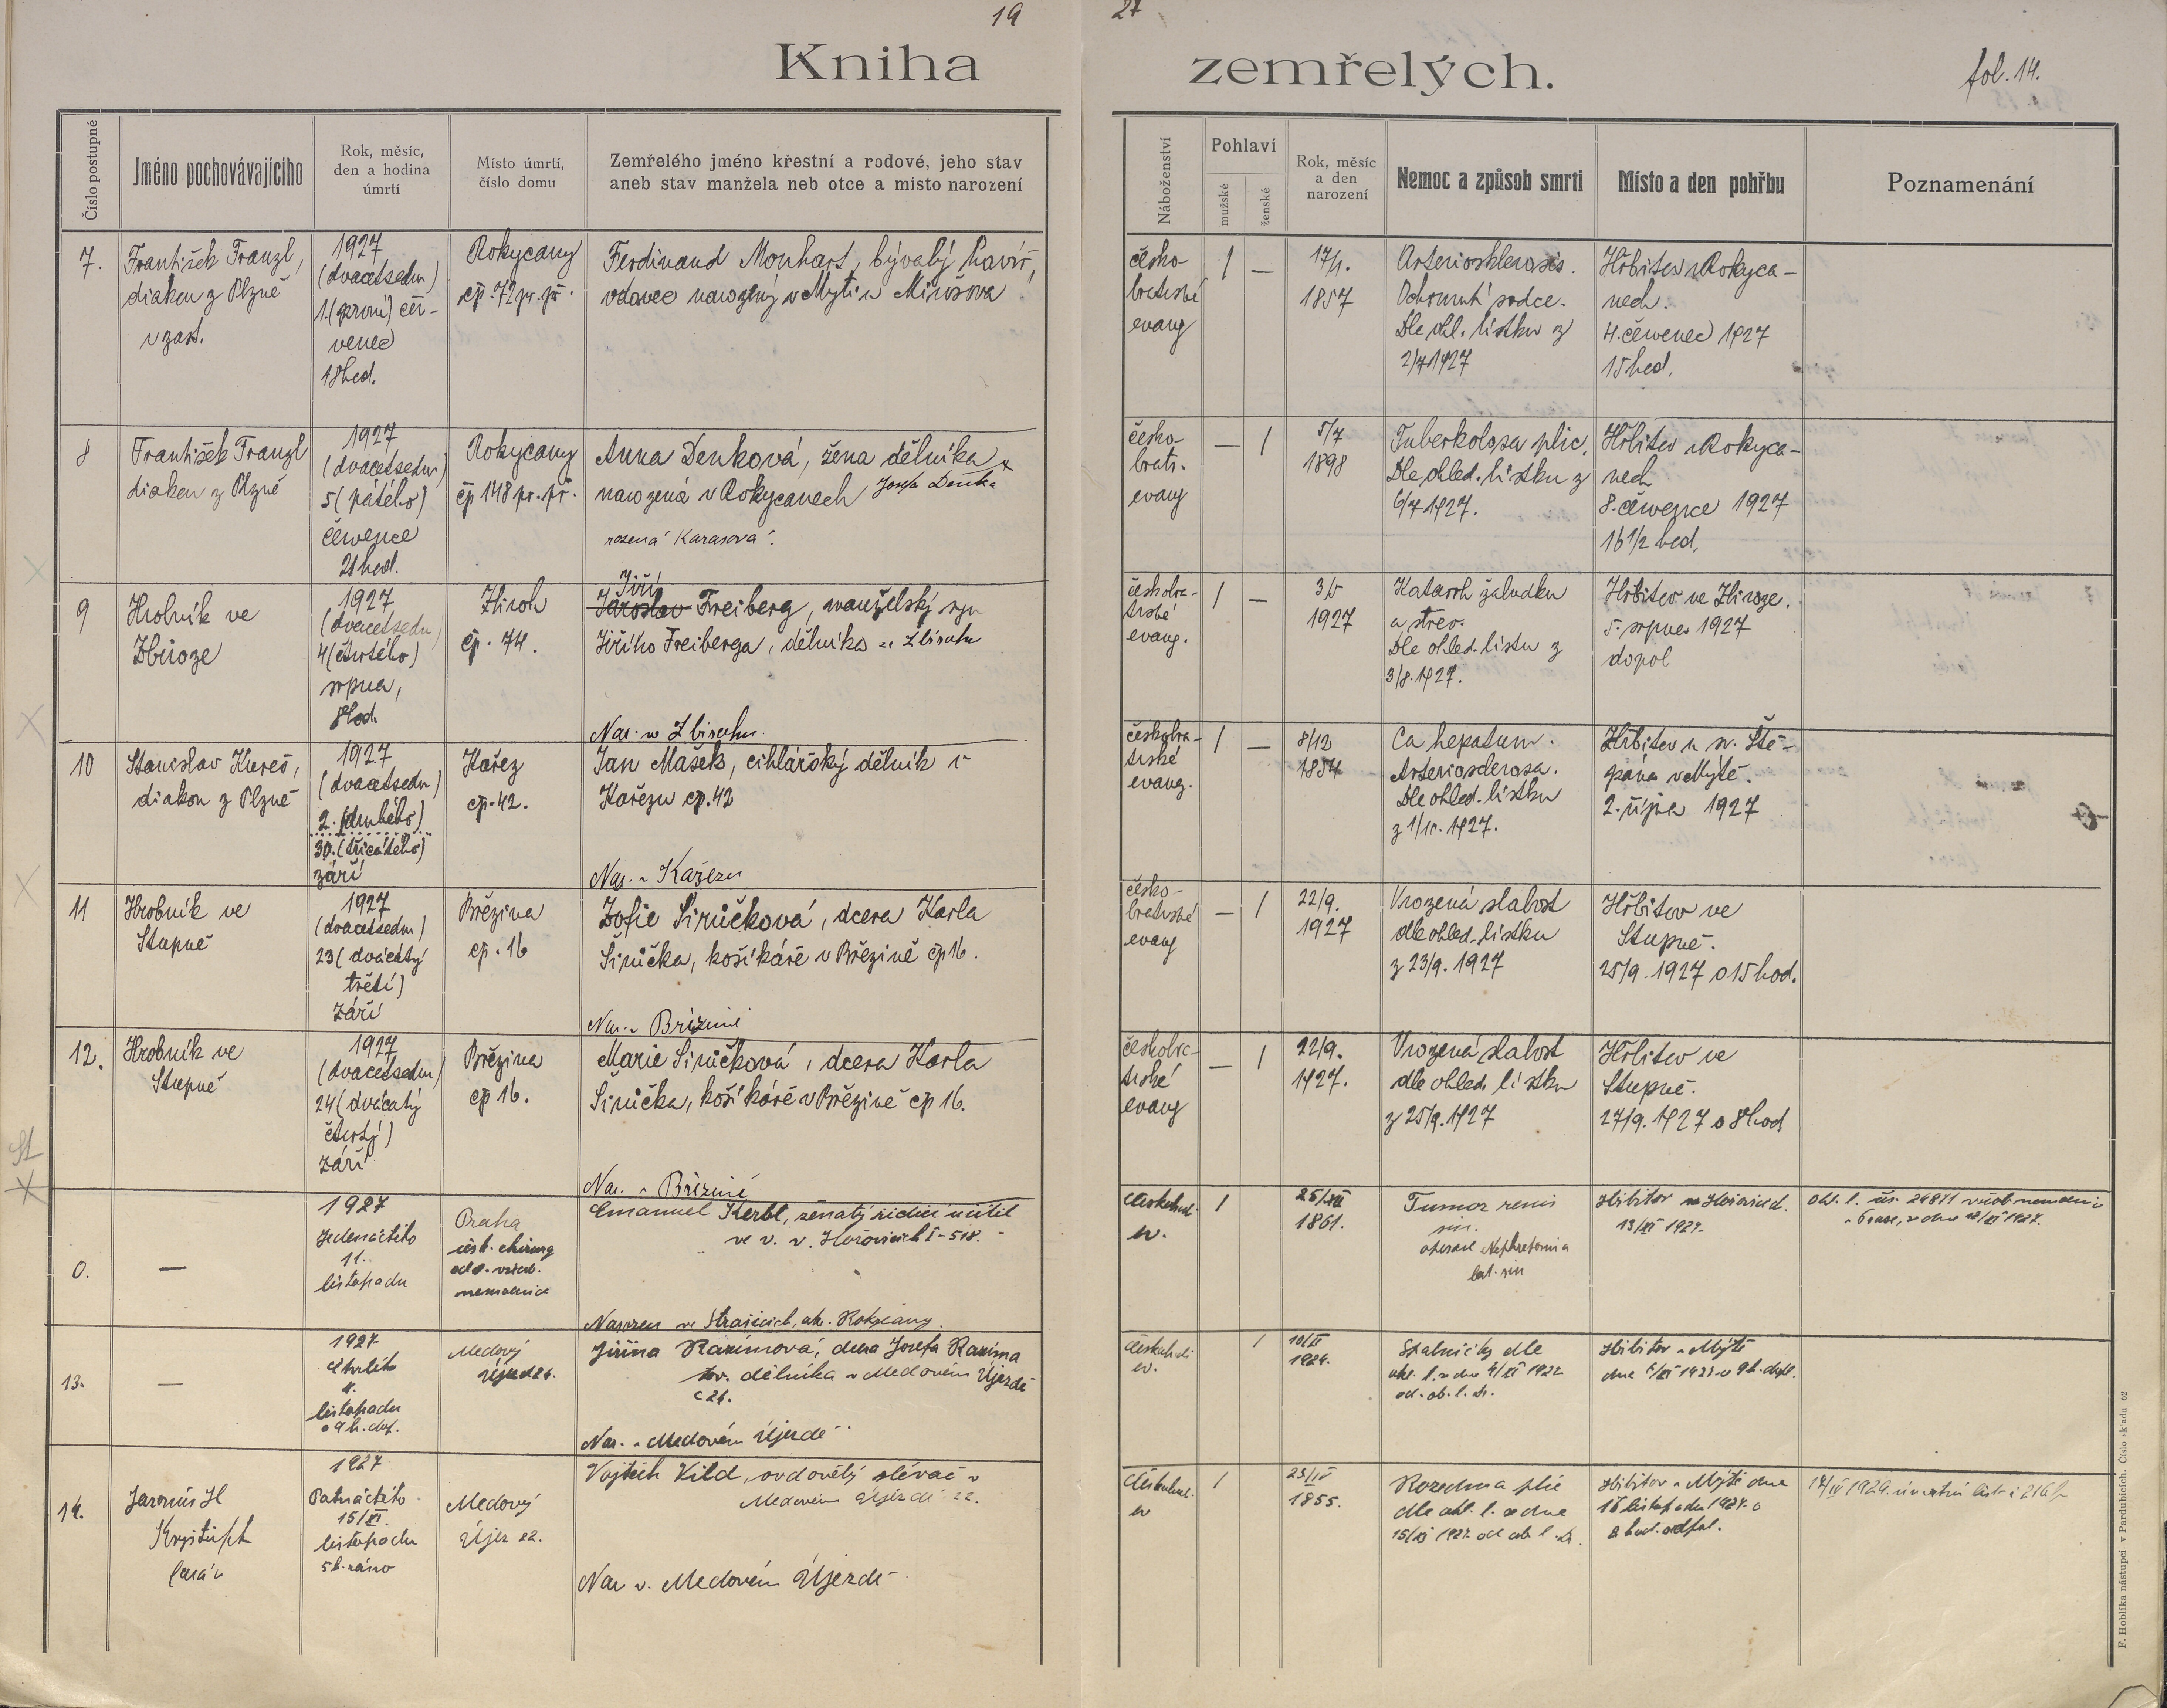 19
27
Kniha
zemřelých.
fol. 14.
Číslo postupné
Jméno pochovávajícího
Rok, měsíc,
den a hodina
úmrtí
Místo úmrtí,
číslo domu
Zemřelého jméno křestní a rodové, jeho stav
aneb stav manžela neb otce a místo narození
Náboženství
Pohlaví
mužské
ženské
Rok, měsíc
a den
narození
Nemoc a způsob smrti
Místo a den pohřbu
Poznamenání
7.
František Franzl,
diakon z Plzně
v zast.
1927
(dvacetsedm)
1. (první) čer-
venec
18 hod.
Rokycany
čp. 72 pr. př.
Ferdinand Monhart, bývalý havíř,
vdovec narozený v Mýti u Mirošova
česko-
bratrské
evang
1
—
17/1.
1857
Arteriosklerosis.
Ochrnutí srdce.
Dle ohl. lístku z
2/7 1927
Hřbitov v Rokyca-
nech.
4. červenec 1927
15 hod.
8
František Franzl
diakon z Plzně
1927
(dvacetsedm)
5 (pátého)
července
21 hod.
Rokycany
čp 148 pr. př.
Anna Denková, žena dělníka
narozená v Rokycanech Josefa Denka
rozená Karasová.
česko-
bratr.
evang
—
1
5/7
1898
Tuberkolosa plic.
Dle ohled. lístku z
6/7 1927.
Hřbitov v Rokyca-
nech
8. července 1927
16 1/2 hod.
9
Hrobník ve
Zbiroze
1927
(dvacetsedm)
4 (čtvrtého)
srpna,
8 hod.
Zbiroh
čp. 74.
Jiří
Jaroslav Freiberg, manželský syn
Jiřího Freiberga, dělníka ve Zbirohu
Nar. ve Zbirohu.
českobra-
trské
evang.
1
—
3/5
1927
Katarrh žaludku
a střev.
Dle ohled. lístu z
3/8. 1927.
Hřbitov ve Zbiroze.
5. srpna 1927
dopol
10
Stanislav Kureš,
diakon z Plzně
1927
(dvacetsedm)
2. (druhého)
30. (třicátého)
září
Kařez
čp. 42.
Jan Mašek, cihlářský dělník v
Kařezu čp. 42
Nar. v Kařezu
českobra-
trské
evang.
1
—
8/12
1854
Ca hepatum.
Arteriosclerosa.
Dle ohled. lístku
z 1/10. 1927.
Hřbitov u sv. Ště-
pána v Mýtě.
2. října 1927
11
Hrobník ve
Stupně
1927
(dvacetsedm)
23 (dvacátý
třetí)
září
Březina
čp. 16
Žofie Sirůčková, dcera Karla
Sirůčka, košíkáře v Březině čp 16.
Nar. v Březině
česko-
bratrské
evang
—
1
22/9.
1927
Vrozená slabost
dle ohled. lístku
z 23/9. 1927
Hřbitov ve
Stupně.
25/9. 1927 o 15 hod.
12.
Hrobník ve
Stupně
1927
(dvacetsedm)
24 (dvacátý
čtvrtý)
září
Březina
čp 16.
Marie Sirůčková, dcera Karla
Sirůčka, košíkáře v Březině čp 16.
Nar. v Březině
českobra-
trské
evang
—
1
22/9.
1927.
Vrozená slabost
dle ohled. lístku
z 25/9. 1927
Hřbitov ve
Stupně.
27/9. 1927 o 8 hod.
0.
—
1927
Jedenáctého
11.
listopadu
Praha
chirurg
nemocnice
Emanuel Kerbl, ženatý řídící učitel
ve v. v. Hořovicích I-518.
Narozen ve Strašicích, okr. Rokycany.
1
25/XII
1861.
Tumor renis
sin.
operace Nephretomia
lat. sin
Hřbitov v Hořovicích.
13/XI 1927.
13.
—
1927
čtvrtého
4.
listopadu
o 9 h. dop.
Medový
Újezd 24.
Jiřina Razímová, dcera Josefa Razíma
tov. dělníka v Medovém Újezdě
č 24.
Nar. v Medovém Újezdě.
1
10/II
1924.
Spalničky dle
ohl. l. z dne 4/XI 1927
od. ob. l. dr.
Hřbitov v Mýtě
14.
Jaromír H
Kryštůfek
farář
1927
Patnáctého
15/XI.
listopadu
5 h. ráno
Medový
Újez 22.
Vojtěch Kild, ovdovělý slévač v
Medovém Újezdě 22.
Nar v. Medovém Újezdě.
1
23/IV
1855.
Rozedma plic
dle ohl. l. z dne
15/XI 1927. od ob. l. dr.
Hřbitov v Mýtě dne
listopadu 1927. o
hod. odpol.
F. Hoblíka nástupci v Pardubicích. Číslo skladu 62